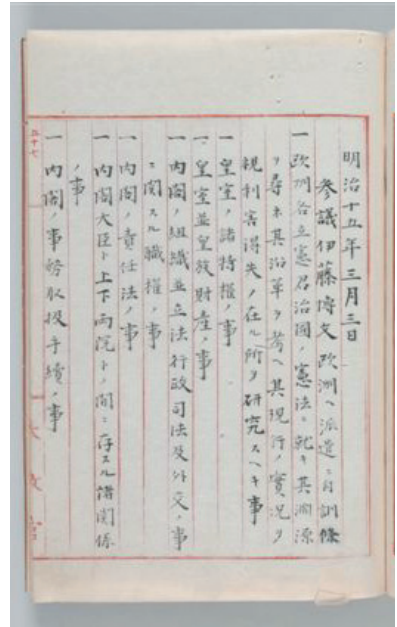 明治十五年三月三日
参議伊藤博文欧洲ヘ派遣ニ付訓條
一欧洲各立憲君治国ノ憲法ニ就キ其淵源
ヲ尋ネ其沿革ヲ考ヘ其現行ノ實况ヲ
視利害得失ノ在ル所ヲ研究スヘキ事
一皇室ノ諸特權ノ事
一皇室並皇族財産ノ事
一内閣ノ組織並立法行政司法及外交ノ事
ニ関スル職權ノ事
一内閣ノ責任法ノ事
一内閣大臣ト上下両院トノ間ニ存スル諸関係
ノ事
一内閣ノ事務取扱手續ノ事
五十七
太政官